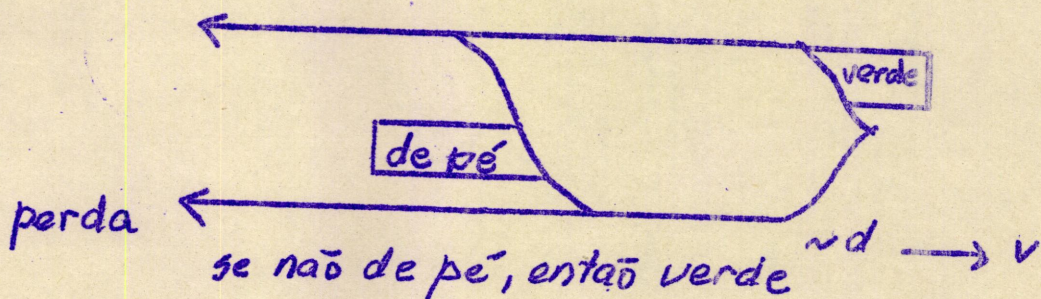 verde
de pé
perda
se não de pé, então verde
~d → v